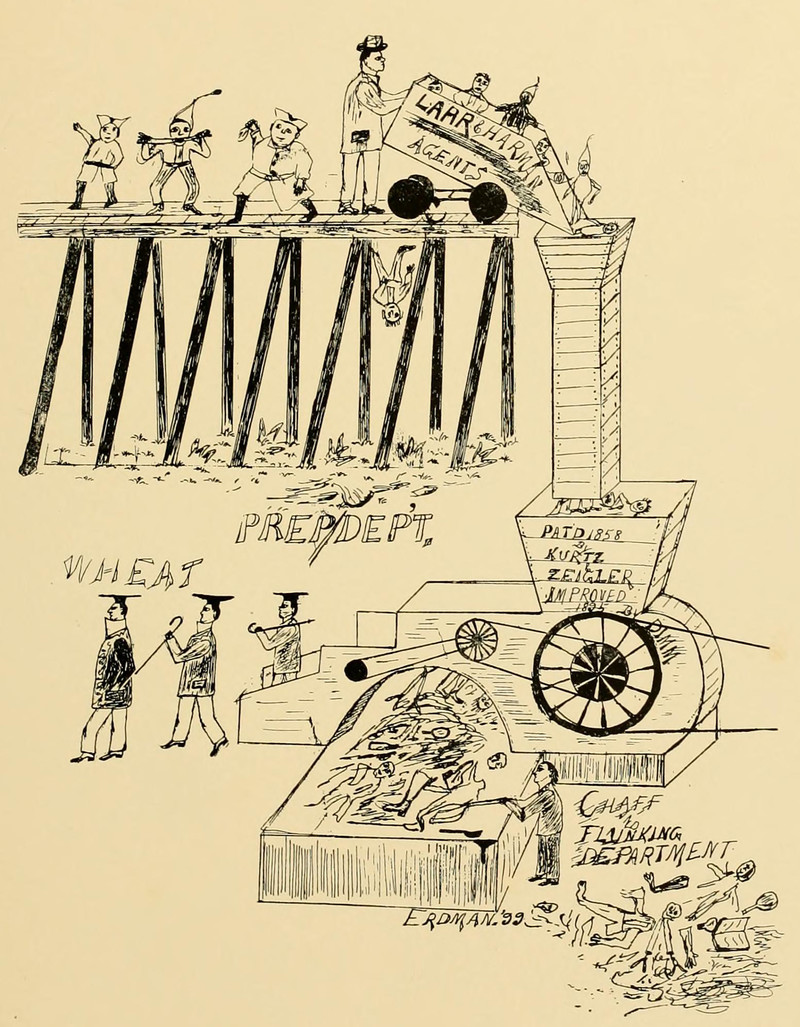 LAAR & HARMAN
AGENTS
PREP/DEP'T.
WHEAT
PAT'D 1858
By
KURTZ
&
ZEIGLER
IMPROVED
CHAFF
to
FLUNKING
DEPARTMENT
ERDMAN. '99